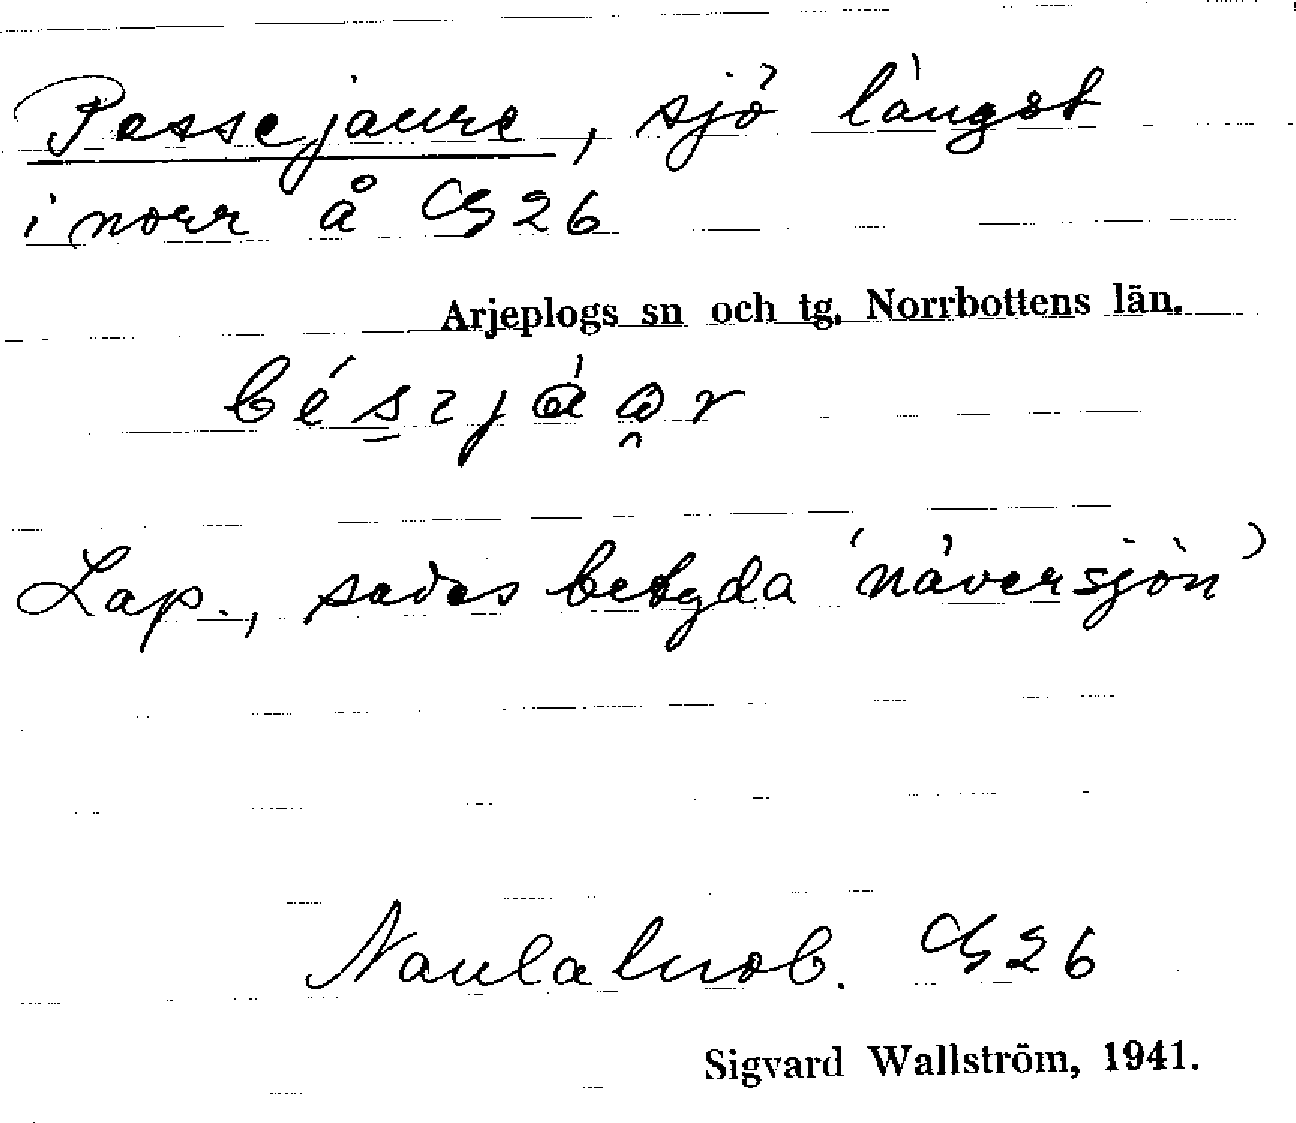 Pessejaure, sjö längst
i norr å G26
Arjeplogs sn och tg. Norrbottens län.
Lap., sades betyda 'näversjön'
G26
Sigvard Wallström, 1941.